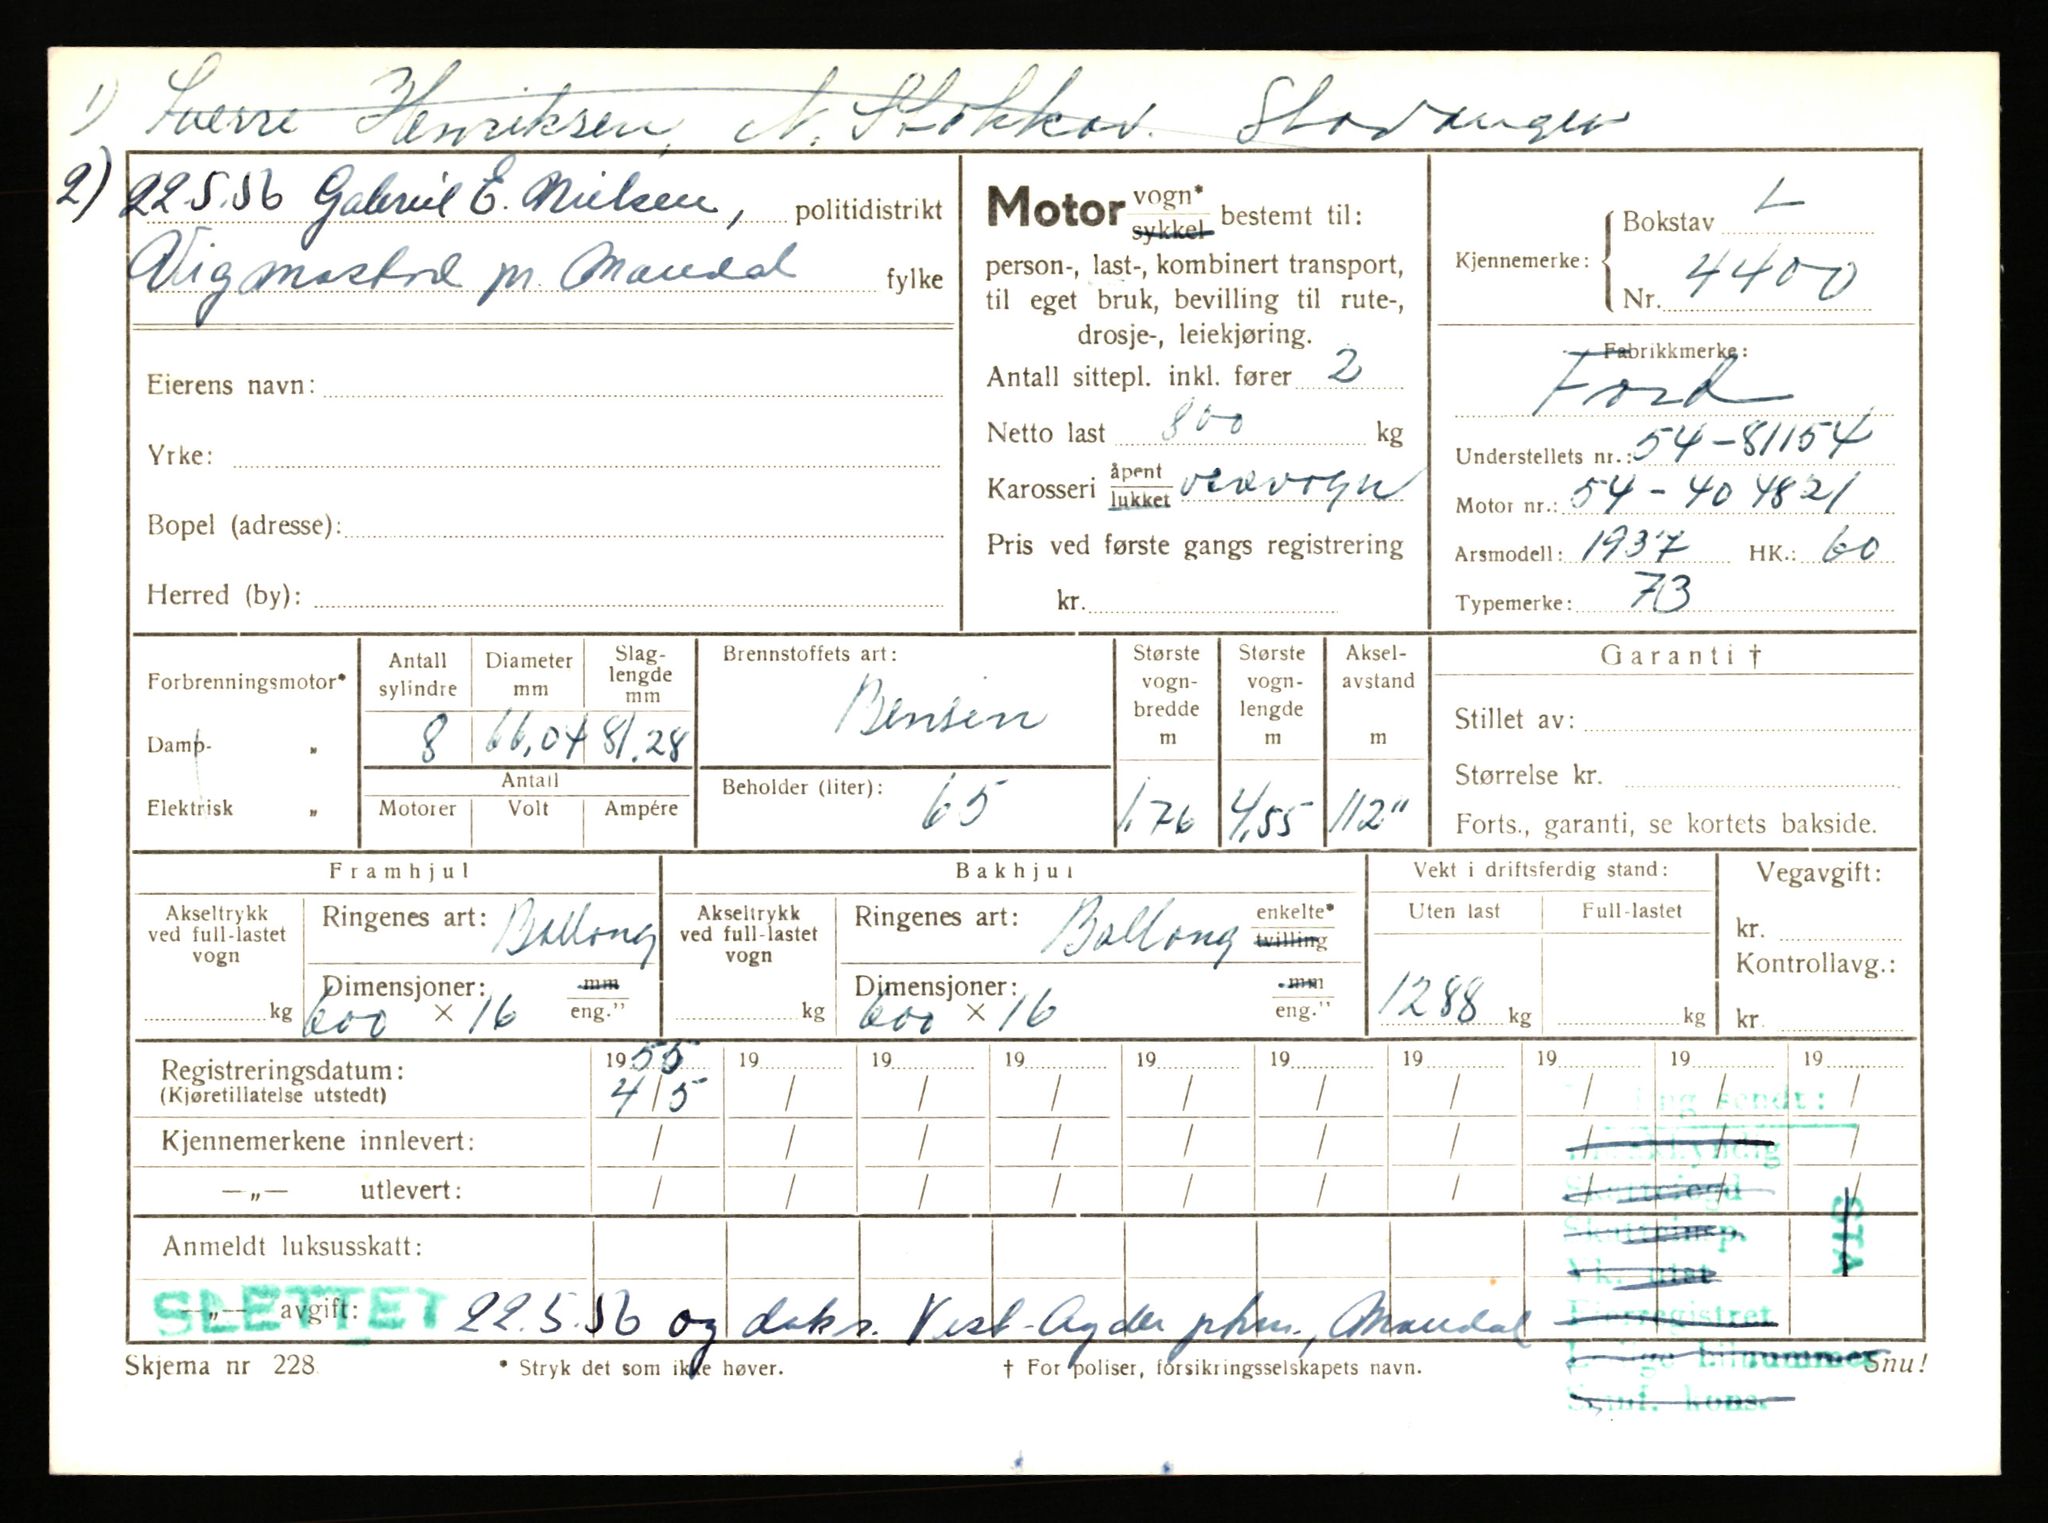 1) Sverre Henriksen, N. Stokkav. Stavanger
2) 22.5.56 Gabriel E. Nielsen, politidistrikt
Vigmostad pr. Mandal fylke
Eierens navn:
Yrke:
Bopel (adresse):
Herred (by):
Motor vogn* sykkel bestemt til:
person-, last-, kombinert transport,
til eget bruk, bevilling til rute-,
drosje-, leiekjøring.
Antall sittepl. inkl. fører 2
Netto last 800 kg
Karosseri åpent lukket varevogn
Pris ved første gangs registrering
kr.
Kjennemerke: Bokstav L
Nr. 4400
Fabrikkmerke:
Ford
Understellets nr.: 54-81154
Motor nr.: 54-404821
Årsmodell: 1937 HK.: 60
Typemerke: 73
Forbrenningsmotor*
Damp- "
Elektrisk "
Antall sylindre Diameter mm Slag-lengde mm
8 66,04 81,28
Antall
Motorer Volt Ampére
Brennstoffets art:
Bensin
Beholder (liter): 65
Største vogn-bredde m Største vogn-lengde m Aksel-avstand m
1,76 4,55 112"
Garanti †
Stillet av:
Størrelse kr.
Forts., garanti, se kortets bakside.
Framhjul
Akseltrykk ved full-lastet vogn
kg
Ringenes art: Ballong
Dimensjoner: mm
600 × 16 eng."
Bakhjul
Akseltrykk ved full-lastet vogn
kg
Ringenes art: Ballong enkelte* tvilling
Dimensjoner: mm
600 × 16 eng."
Vekt i driftsferdig stand:
Uten last Full-lastet
1288 kg kg
Vegavgift:
kr.
Kontrollavg.:
kr.
Registreringsdatum: 1955 19 19 19 19 19 19 19 19 19
(Kjøretillatelse utstedt) 4/5 / / / / / / / / /
sendt:
Kjennemerkene innlevert: / / / / / / / / / /
—„— utlevert: / / / / / / / / / /
Anmeldt luksusskatt:
STA
—„— avgift:
SLETTET 22.5.56 og doks. Vest-Agder phm., Mandal
Eierregistret
Skjema nr 228 * Stryk det som ikke høver. † For poliser, forsikringsselskapets navn. Snu!